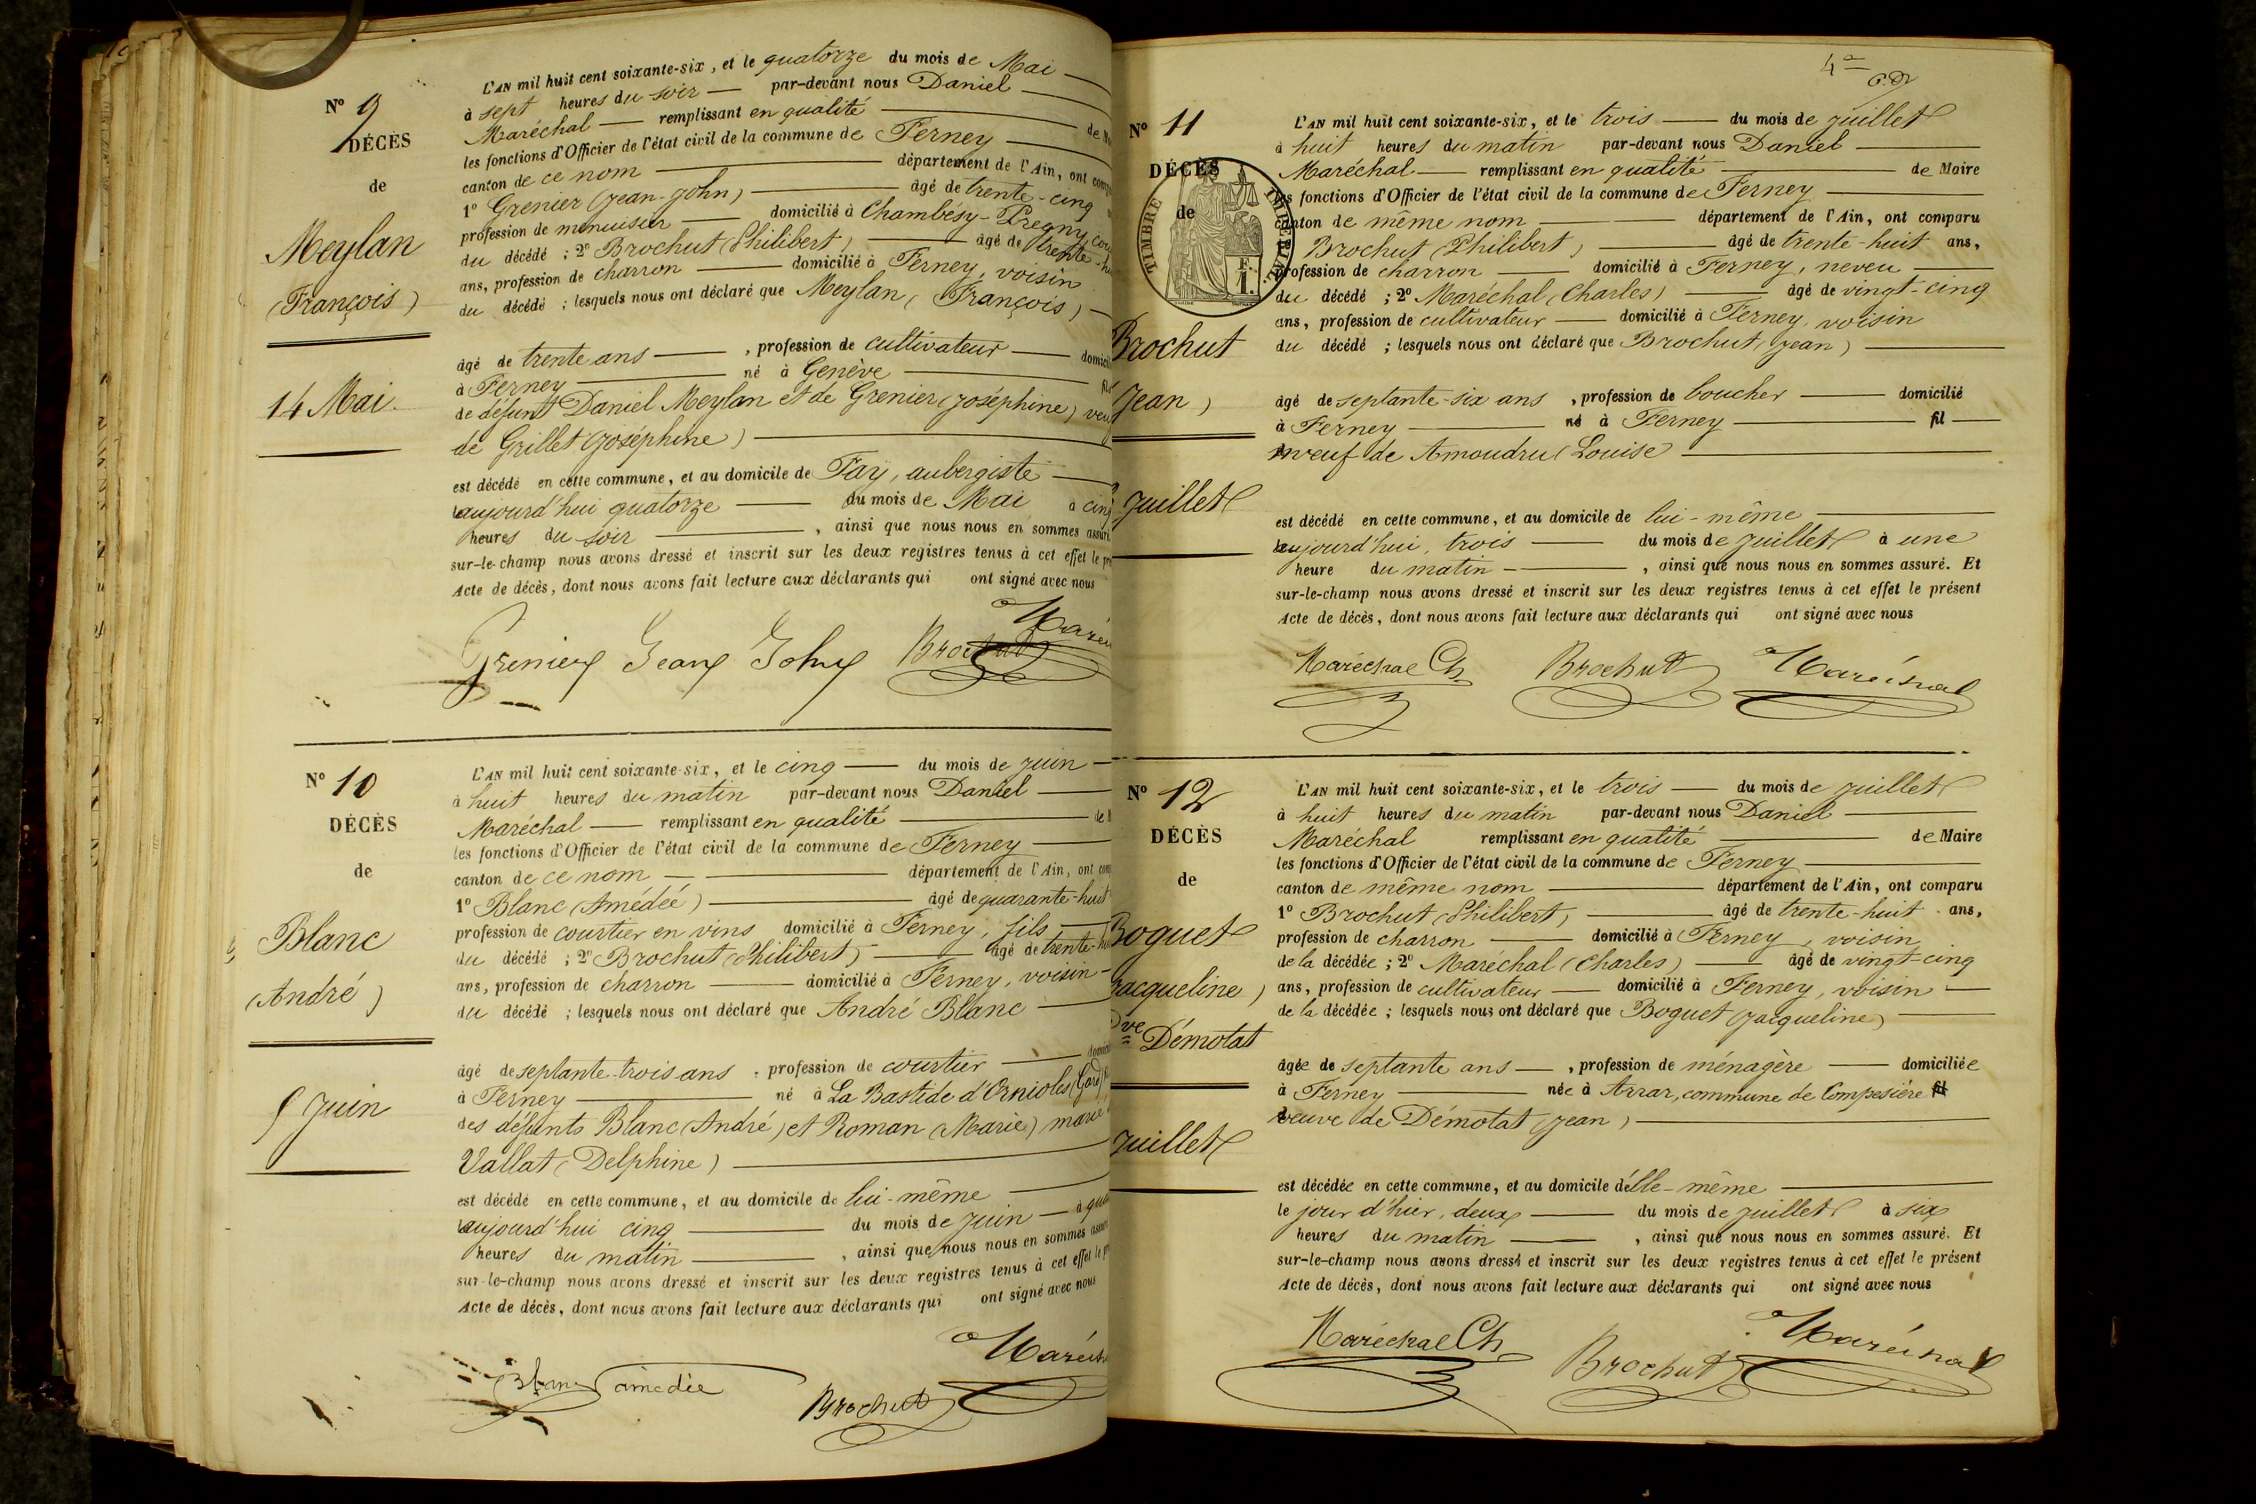 Nº 9
DÉCÈS
de
Meylan
(François)
14 Mai.
L'AN mil huit cent soixante-six, et le quatorze du mois de Mai
à sept heures du soir par-devant nous Daniel
Maréchal remplissant en qualité de
les fonctions d'Officier de l'état civil de la commune de Ferney
canton de ce nom département de l'Ain, ont
1º Grenier (Jean-John) âgé de trente-cinq
profession de menuisier domicilié à Chambésy-Pregny,
du décédé ; 2º Brochut (Philibert) âgé de trente-
ans, profession de charron domicilié à Ferney, voisin
du décédé ; lesquels nous ont déclaré que Meylan (François)
âgé de trente ans , profession de cultivateur
à Ferney né à Genève
de défunt Daniel Meylan et de Grenier (Joséphine)
de Grillet (Joséphine)
est décédé en cette commune, et au domicile de Fay, aubergiste
aujourd'hui quatorze du mois de Mai à cinq
heures du soir , ainsi que nous nous en sommes
sur-le-champ nous avons dressé et inscrit sur les deux registres tenus à cet effet le
Acte de décès, dont nous avons fait lecture aux déclarants qui ont signé avec nous
Grenier Jean John Brochut
Nº 10
DÉCÈS
de
Blanc
(André)
5 Juin
L'AN mil huit cent soixante-six, et le cinq du mois de Juin
à huit heures du matin par-devant nous Daniel
Maréchal remplissant en qualité de
les fonctions d'Officier de l'état civil de la commune de Ferney
canton de ce nom département de l'Ain, ont
1º Blanc (Amédée) âgé de quarante-huit
profession de courtier en vins domicilié à Ferney, fils
du décédé ; 2º Brochut (Philibert) âgé de trente-
ans, profession de charron domicilié à Ferney, voisin
du décédé ; lesquels nous ont déclaré que André Blanc
âgé de septante-trois ans , profession de courtier
à Ferney né à La Bastide d'Ornioles (Gard)
des défunts Blanc (André) et Roman (Marie)
Vallat (Delphine)
est décédé en cette commune, et au domicile de lui-même
aujourd'hui cinq du mois de Juin à
heures du matin , ainsi que nous nous en sommes
sur-le-champ nous avons dressé et inscrit sur les deux registres tenus à cet effet le
Acte de décès, dont nous avons fait lecture aux déclarants qui ont signé avec nous
Blanc amédée Brochut
4e
Nº 11
DÉCÈS
de
TIMBRE IMPÉRIAL
F.
1.
Brochut
Jean)
Juillet
L'AN mil huit cent soixante-six, et le trois du mois de Juillet
à huit heures du matin par-devant nous Daniel
Maréchal remplissant en qualité de Maire
les fonctions d'Officier de l'état civil de la commune de Ferney
canton de même nom département de l'Ain, ont comparu
Brochut (Philibert) âgé de trente-huit ans,
profession de charron domicilié à Ferney, neveu
du décédé ; 2º Maréchal (Charles) âgé de vingt-cinq
ans, profession de cultivateur domicilié à Ferney, voisin
du décédé ; lesquels nous ont déclaré que Brochut (Jean)
âgé de septante-six ans , profession de boucher domicilié
à Ferney né à Ferney fil
veuf de Amoudru (Louise
est décédé en cette commune, et au domicile de lui-même
aujourd'hui, trois du mois de Juillet à une
heure du matin , ainsi que nous nous en sommes assuré. Et
sur-le-champ nous avons dressé et inscrit sur les deux registres tenus à cet effet le présent
Acte de décès, dont nous avons fait lecture aux déclarants qui ont signé avec nous
Maréchal Ch Brochut Maréchal
Nº 12
DÉCÈS
de
Boguet
Jacqueline)
Vve Démotat
Juillet
L'AN mil huit cent soixante-six, et le trois du mois de Juillet
à huit heures du matin par-devant nous Daniel
Maréchal remplissant en qualité de Maire
les fonctions d'Officier de l'état civil de la commune de Ferney
canton de même nom département de l'Ain, ont comparu
1º Brochut (Philibert) âgé de trente-huit ans,
profession de charron domicilié à Ferney, voisin
de la décédée ; 2º Maréchal (Charles) âgé de vingt-cinq
ans, profession de cultivateur domicilié à Ferney, voisin
de la décédée ; lesquels nous ont déclaré que Boguet (Jacqueline)
âgée de septante ans , profession de ménagère domiciliée
à Ferney née à Arrar, commune de Compesière fil
veuve de Démotat (Jean)
est décédée en cette commune, et au domicile d'elle-même
le jour d'hier, deux du mois de Juillet à six
heures du matin , ainsi que nous nous en sommes assuré. Et
sur-le-champ nous avons dressé et inscrit sur les deux registres tenus à cet effet le présent
Acte de décès, dont nous avons fait lecture aux déclarants qui ont signé avec nous
Maréchal Ch Brochut Maréchal